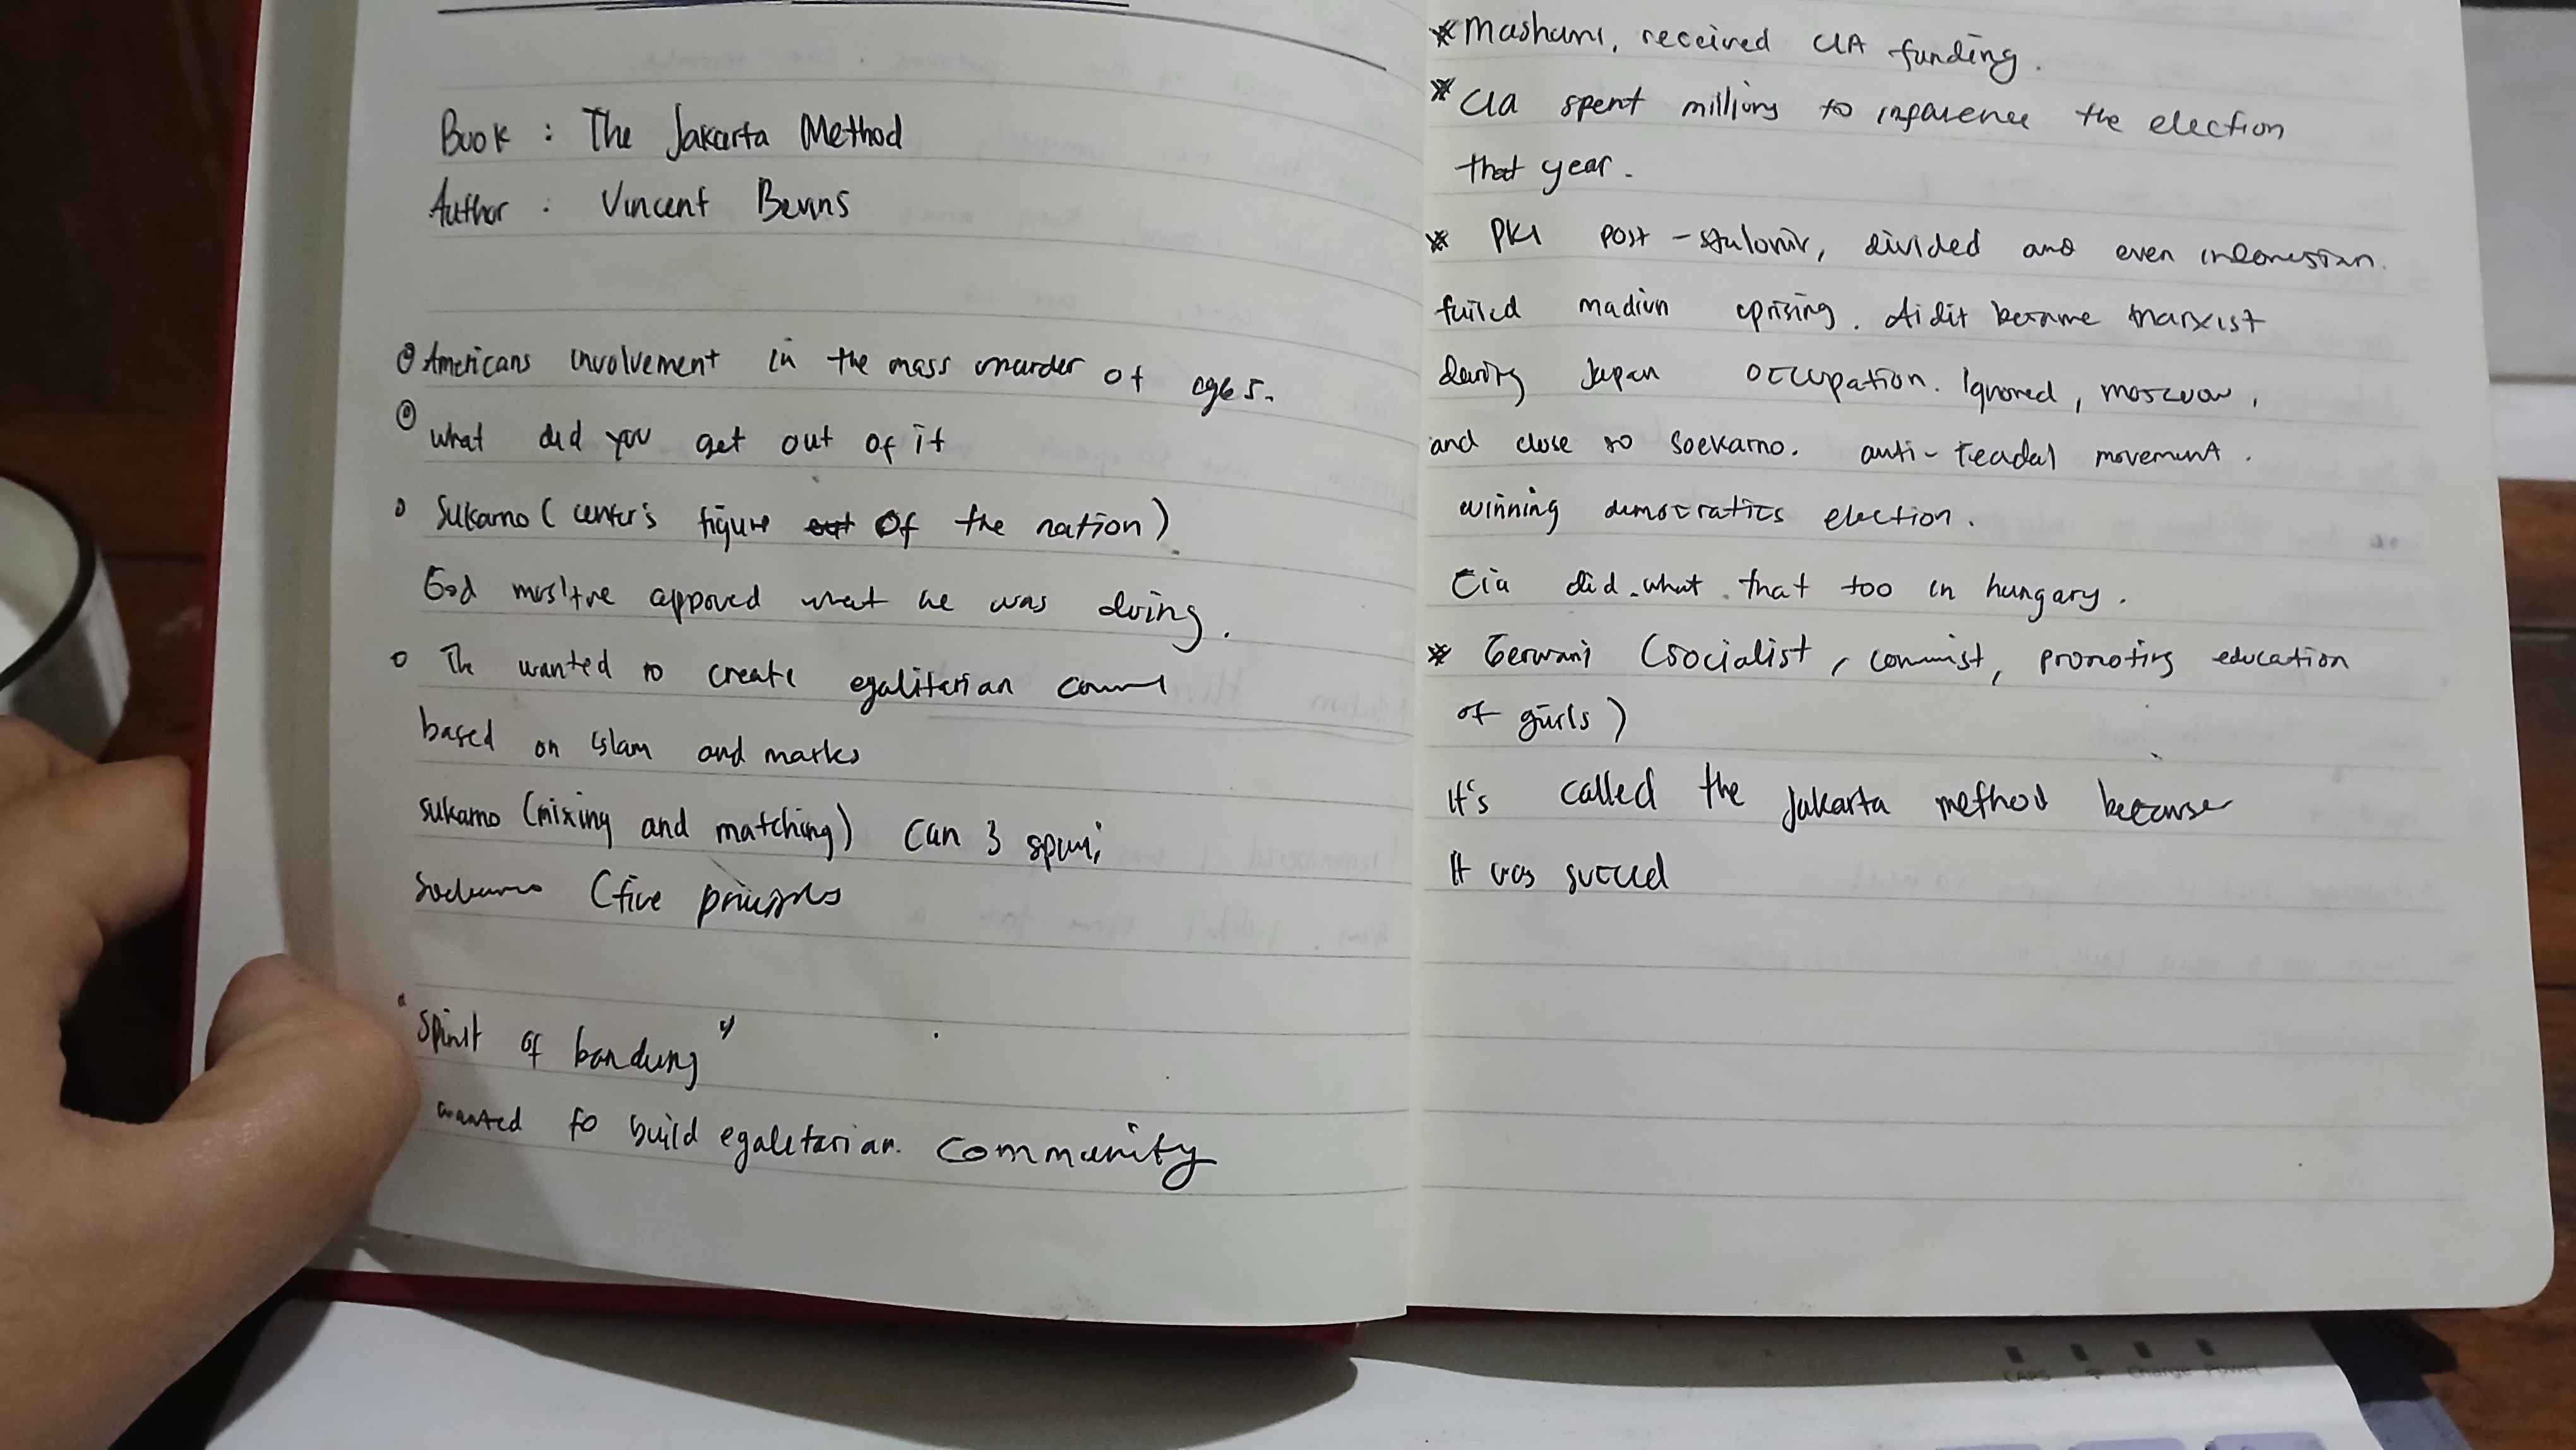 Book : The Jakarta Method
Author : Vincent Bevins
Americans involvement in the mass murder of 1965.
What did you get out of it
Sukarno ( center's figure out of the nation )
God approved what he was doing.
The wanted to create egalitarian
based on islam and marks
sukarno (mixing and matching) can 3
(five
"Spirit of bandung"
wanted to build egaletarian. community
* Mashumi, received CIA funding.
* CIA spent millions to the election
that year.
* PKI post - divided and even indonesian.
failed madiun uprising. Aidit became marxist
during Japan occupation. Ignored,
and close to Soekarno. anti-feadal movement.
winning democratics election.
Cia did what that too in hungary.
* Gerwani (socialist, promoting education
of girls)
It's called the jakarta method because
It was succed
CAPS Charge Power